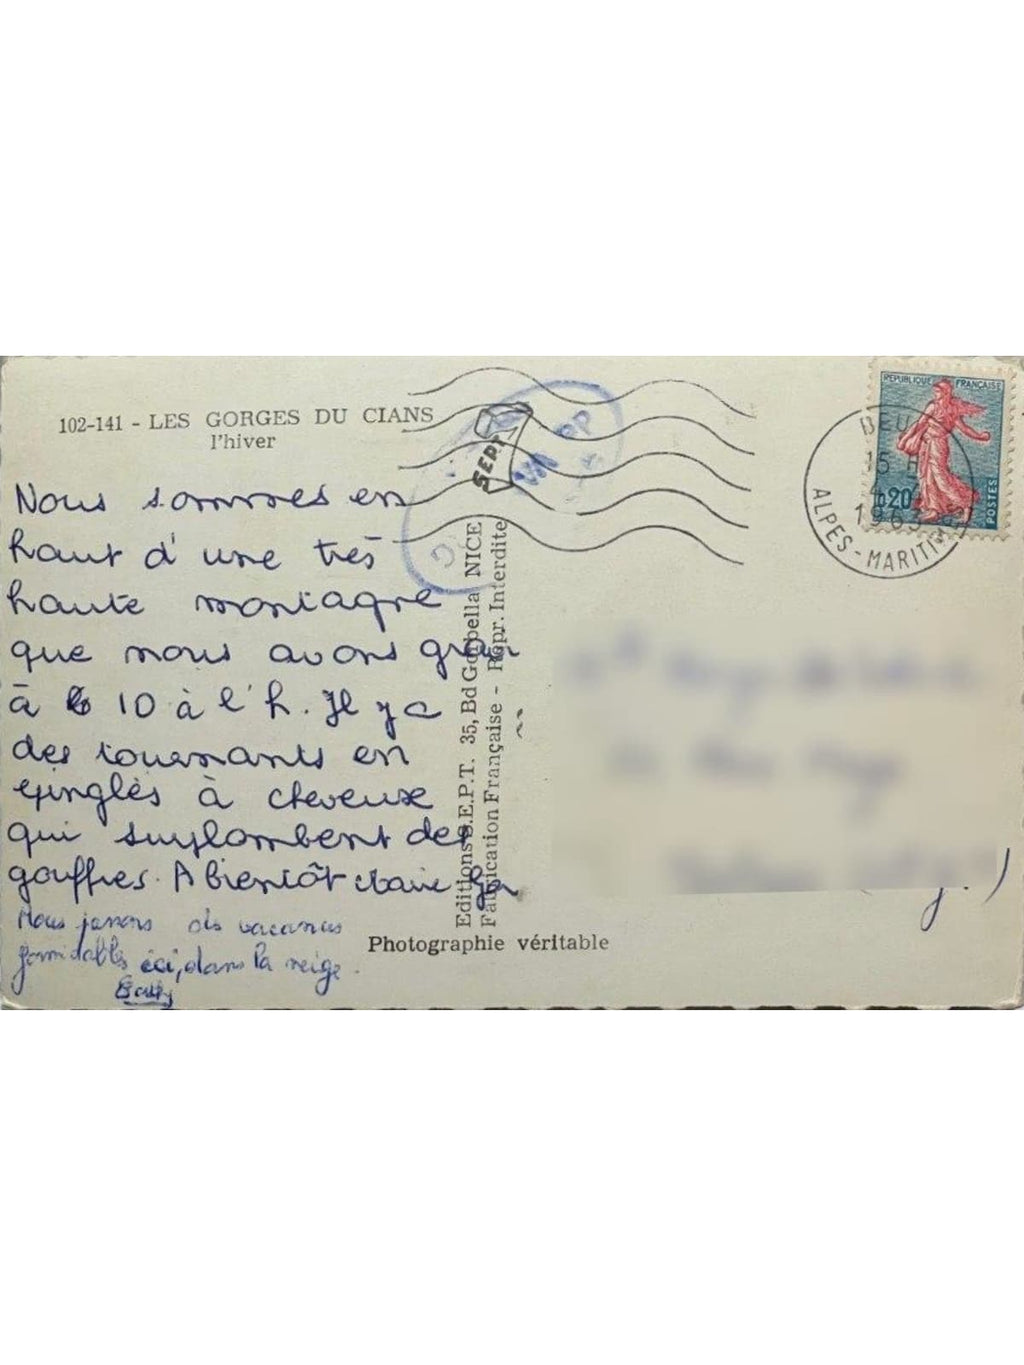 102-141 - LES GORGES DU CIANS
l'hiver
Nous sommes en
haut d'une très
haute montagne
que nous avons
à 10 à l'h. Il y a
des tournants en
épinglès à cheveux
qui surplombent des
gouffres. A bientôt Claire
Nous passons des vacances
formidables ici, dans la neige.
Editions S.E.P.T. 35, Bd Gorbella NICE
Fabrication Française - Repr. Interdite
Photographie véritable
SEPT
REPUBLIQUE FRANÇAISE
0,20
POSTES
BEUIL
15 H
1963
ALPES-MARITIMES